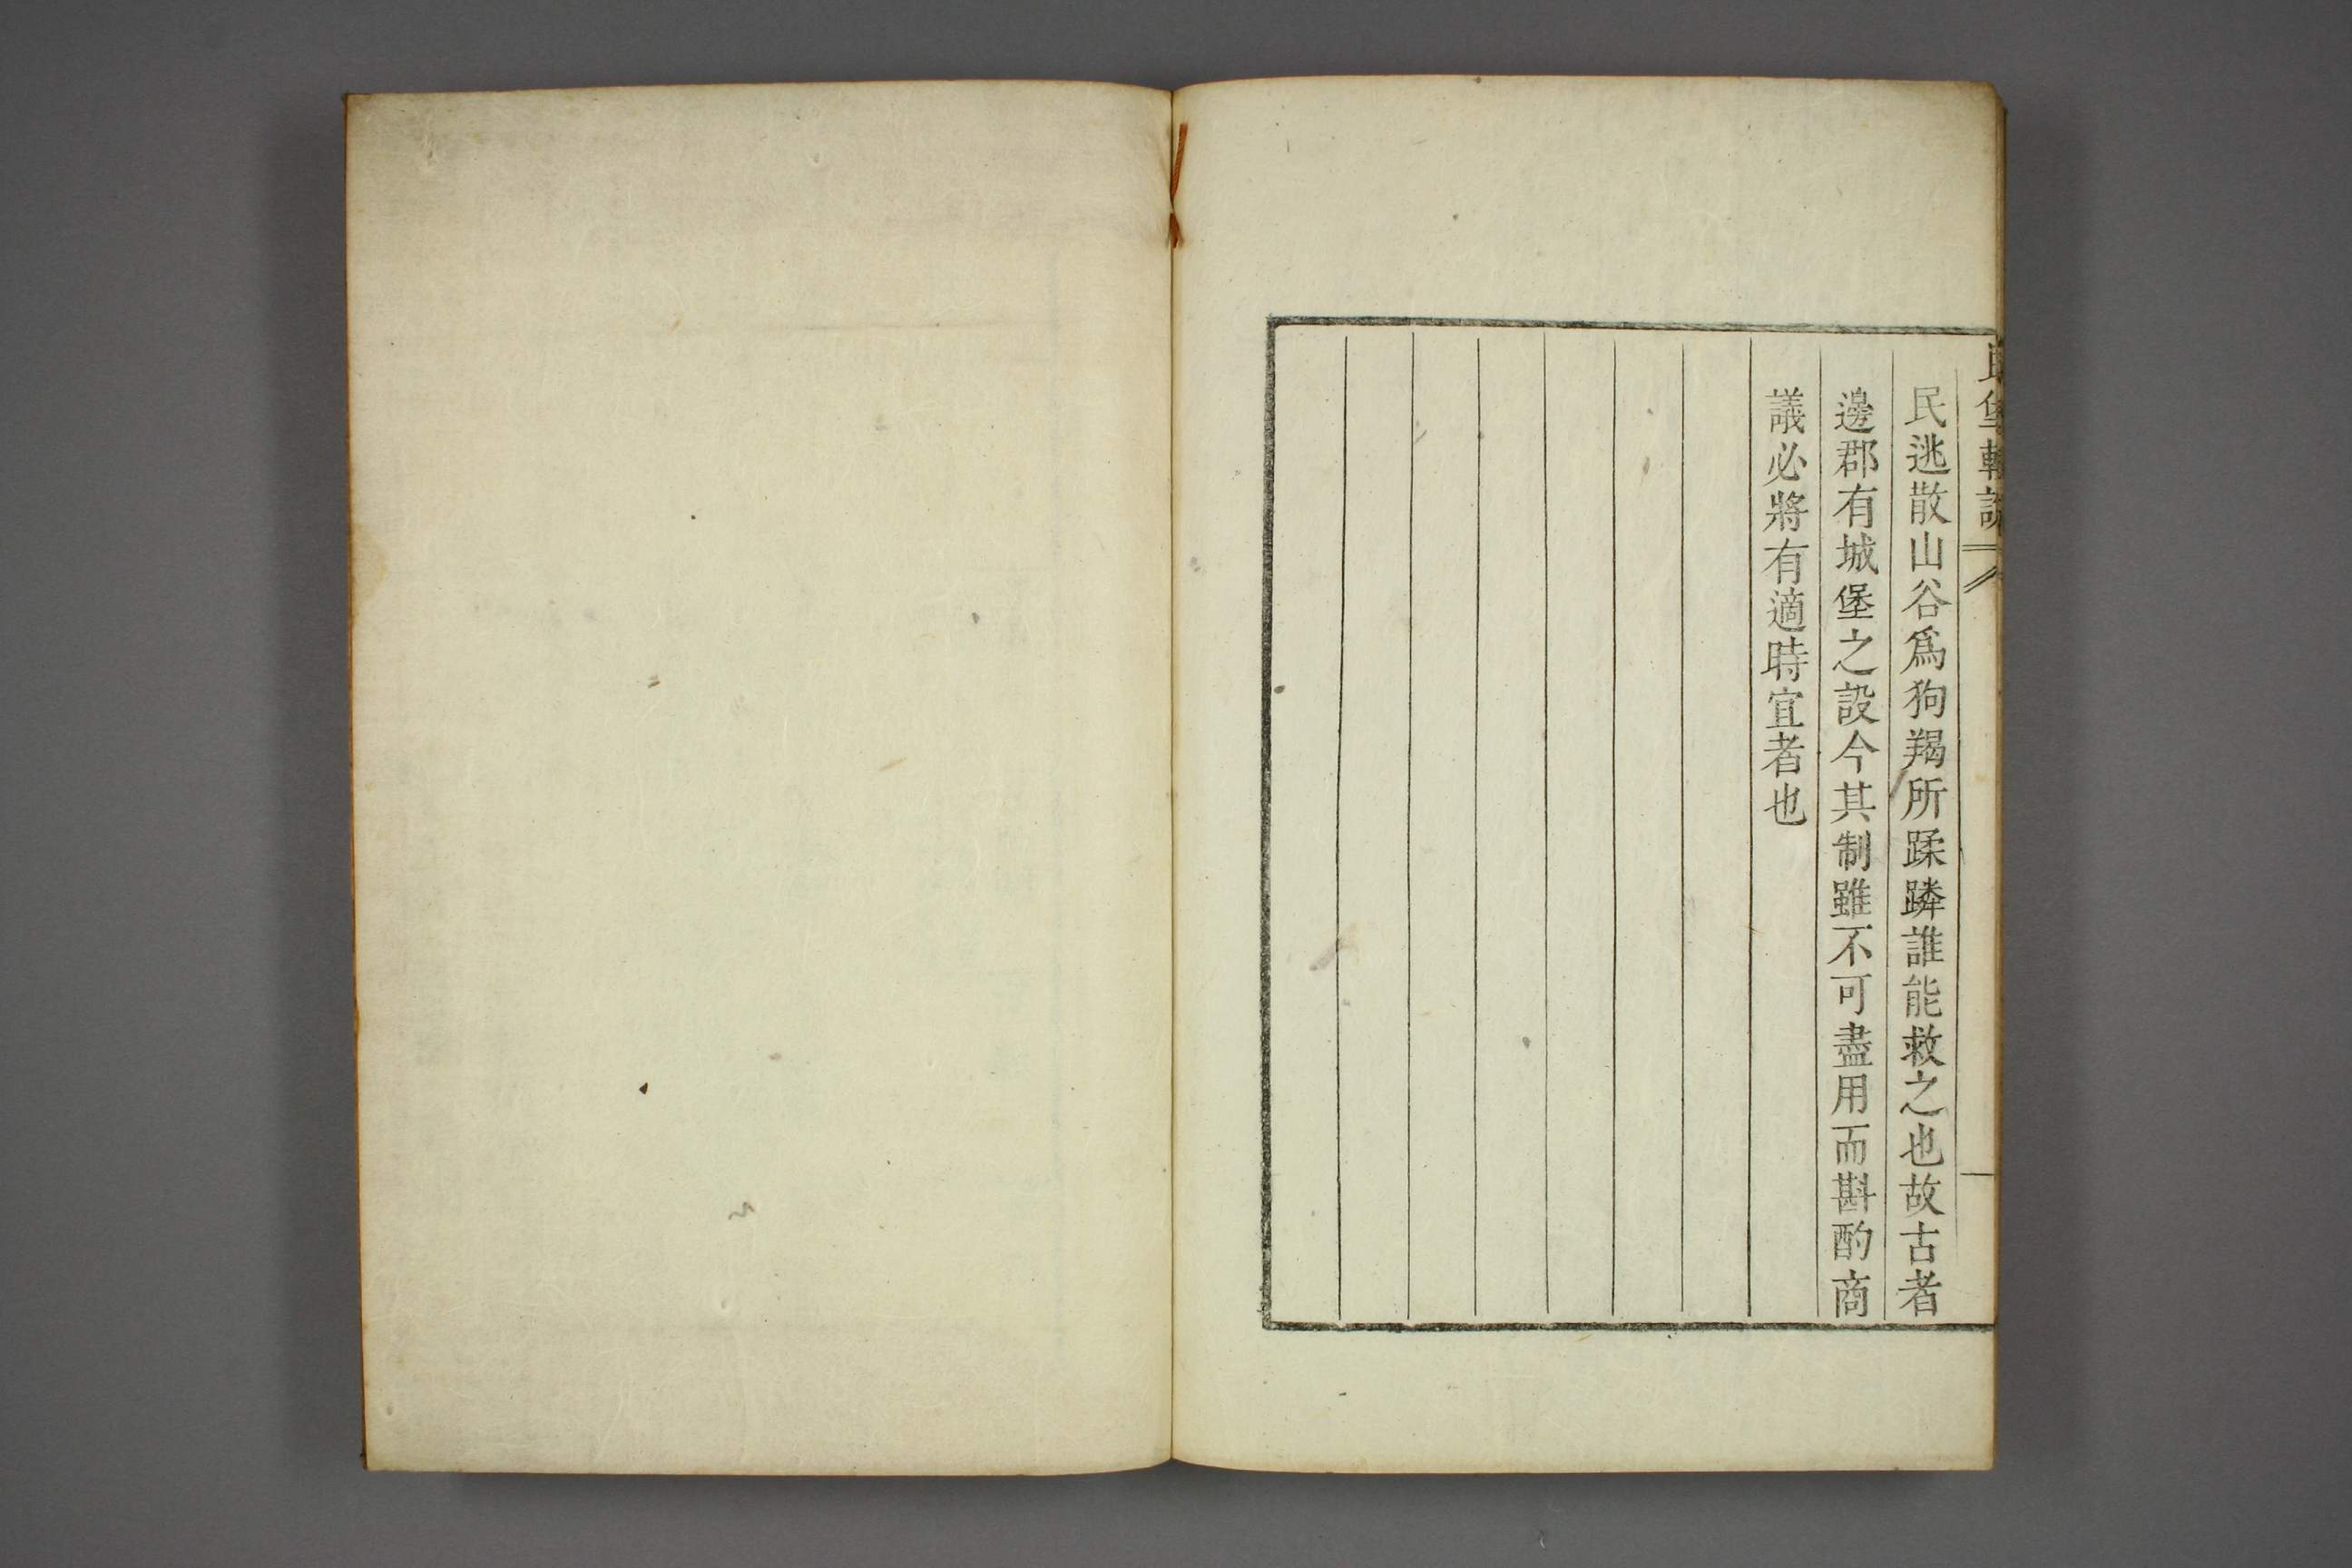 民堡輯說
民逃散山谷爲狗羯所蹂蹸誰能救之也故古者
邊郡有城堡之設今其制雖不可盡用而斟酌商
議必將有適時宜者也